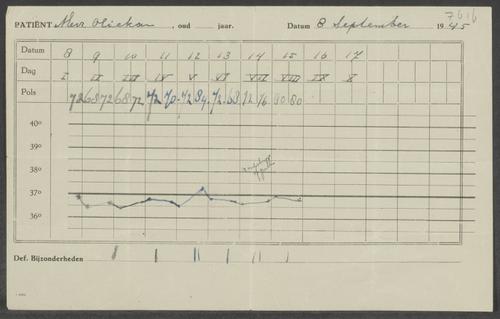 7616
PATIËNT Mevr. , oud jaar. Datum 8 September 1945
Datum 8 9 10 11 12 13 14 15 16 17
Dag I II III IV V VI VII VIII IX X
Pols 72 68 72 68 72 72 70 72 84 72 68 72 76 80 80
40°
39°
38°
37°
36°
Def. Bijzonderheden